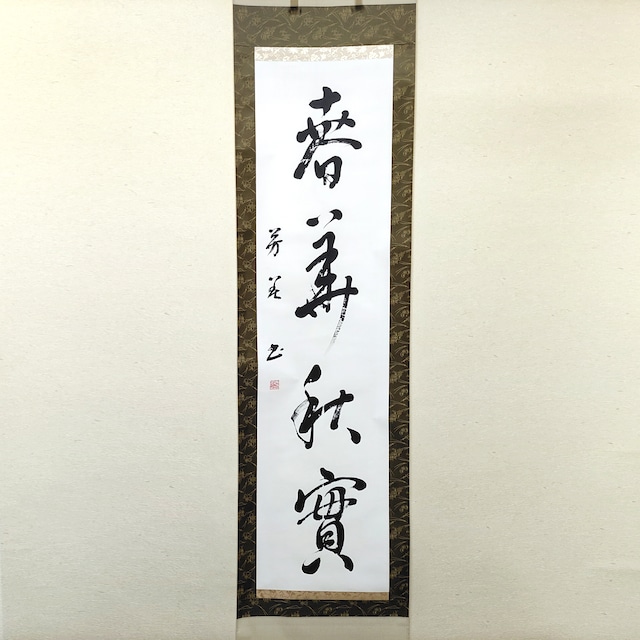 春華秋實
芳
書